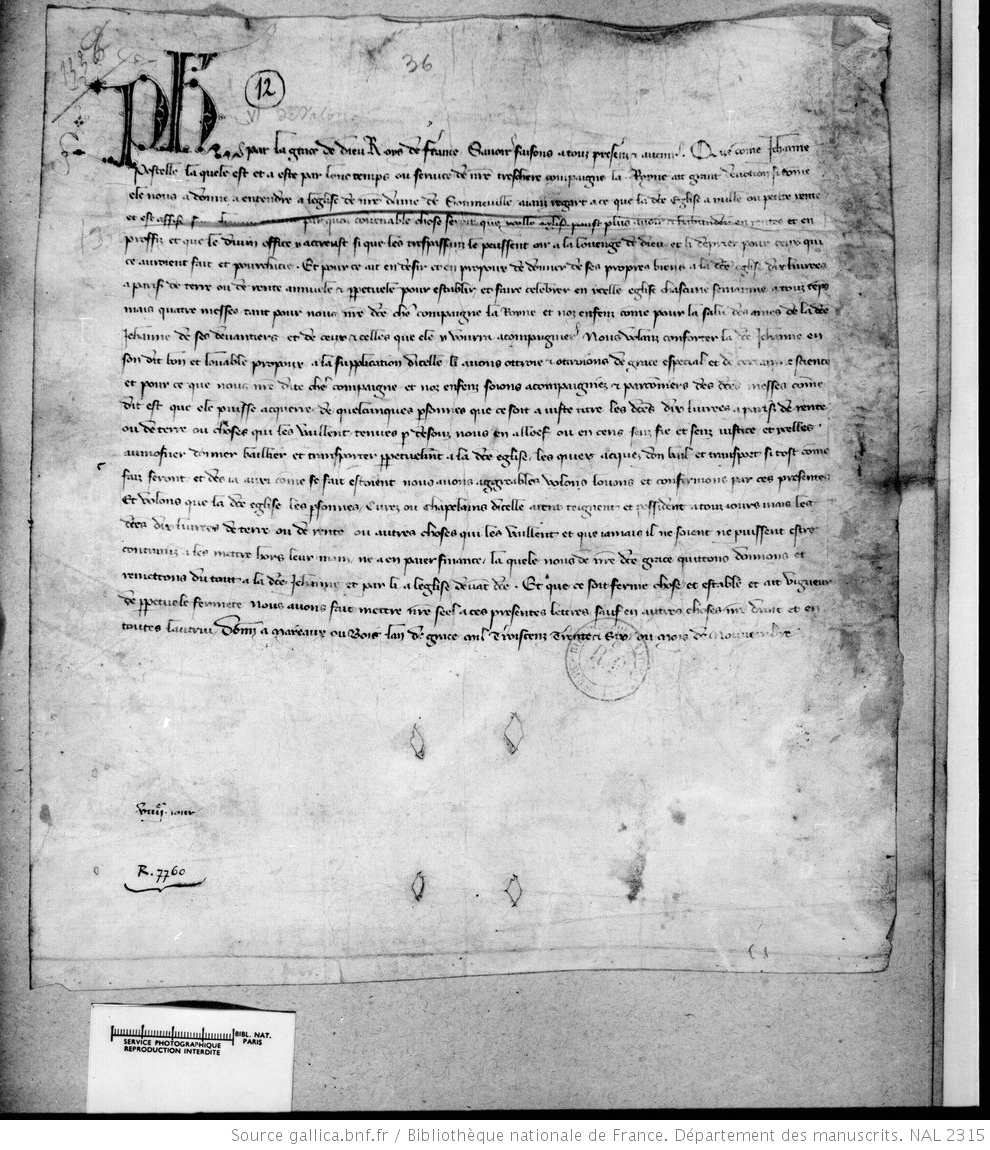 36
12
Ph par la grace de dieu Roys de france Savoir faisons a touz presenz et avenir Que come Jehanne
la quele est et a este par lonc temps ou service de nre treschiere compaigne la Royne ait grant devotion si come
ele nous a donne a entendre a leglise de nre dame de aiant regart a ce que la dce Eglise a nulle ou petite rente
et est assise par quoi covenable chose seroit que ycelle eglise peust plus avoir en rentes et en
proffiz et que le divin office y acreust si que les trespassanz le peussent oir a la loenge de dieu et li deprier pour ceux qui
ce auroient fait et pourchacie. Et pour ce ait en desir et en propour de donner de ses propres biens a la dce eglise dix livrees
a paris de terre ou de rente annuele et ppetuele pour establir et faire celebrer en ycelle eglise chascune semainne a touz temps
mais quatre messes tant pour nous nre dce chere compaigne la Royne et noz enfenz come pour le salu des ames de la dce
Jehanne de ses devantiers et de ceux et celles que ele y vourra acompaignier Nous volanz conforter la dce Jehanne en
son dit bon et louable propour a la supplication dicelle li avons ottroie et ottroions de grace especial et de certainne science
et pour ce que nous nre dite chere compaigne et noz enfenz soions acompaigniez et parconniers des dces messes come
dit est que ele puisse acquerre de quelcunques psonnes que ce soit a juste titre les dces dix livrees a paris de rente
ou de terre ou choses qui les vaillent tenues p dessouz nous en alloef ou en cens sanz fie et senz justice et ycelles
aumosner donner baillier et transporter ppetuelmt a la dce eglise les quiex acquez don bail et transport si tost come
faiz seront et des ja aussi come se fait estoient nous avons aggreables volons loons et confermons par ces presentes
Et volons que la dce eglise les psonnes Curez ou chapelains dicelle aient teignent et possident a touz jours mais les
dces dix livrees de terre ou de rente ou autres choses qui les vaillent et que jamais il ne soient ne puissent estre
contrainz a les mettre hors leur main ne a en paier finance la quele nous de nre dce grace quittons donnons et
remettons du tout a la dce Jehanne et par li a leglise devant dce. Et que ce soit ferme chose et estable et ait vigueur
de ppetuele fermete nous avons fait mettre nre seel a ces presentes lettres sauf en autres choses nre droit et en
toutes lautrui Donne a Mareaux ou Bois lan de grace mil Troiscenz Trente et Six ou mois de Novembre
R. 7760
BIBL. NAT. PARIS
SERVICE PHOTOGRAPHIQUE
REPRODUCTION INTERDITE
Source gallica.bnf.fr / Bibliothèque nationale de France. Département des manuscrits. NAL 2315